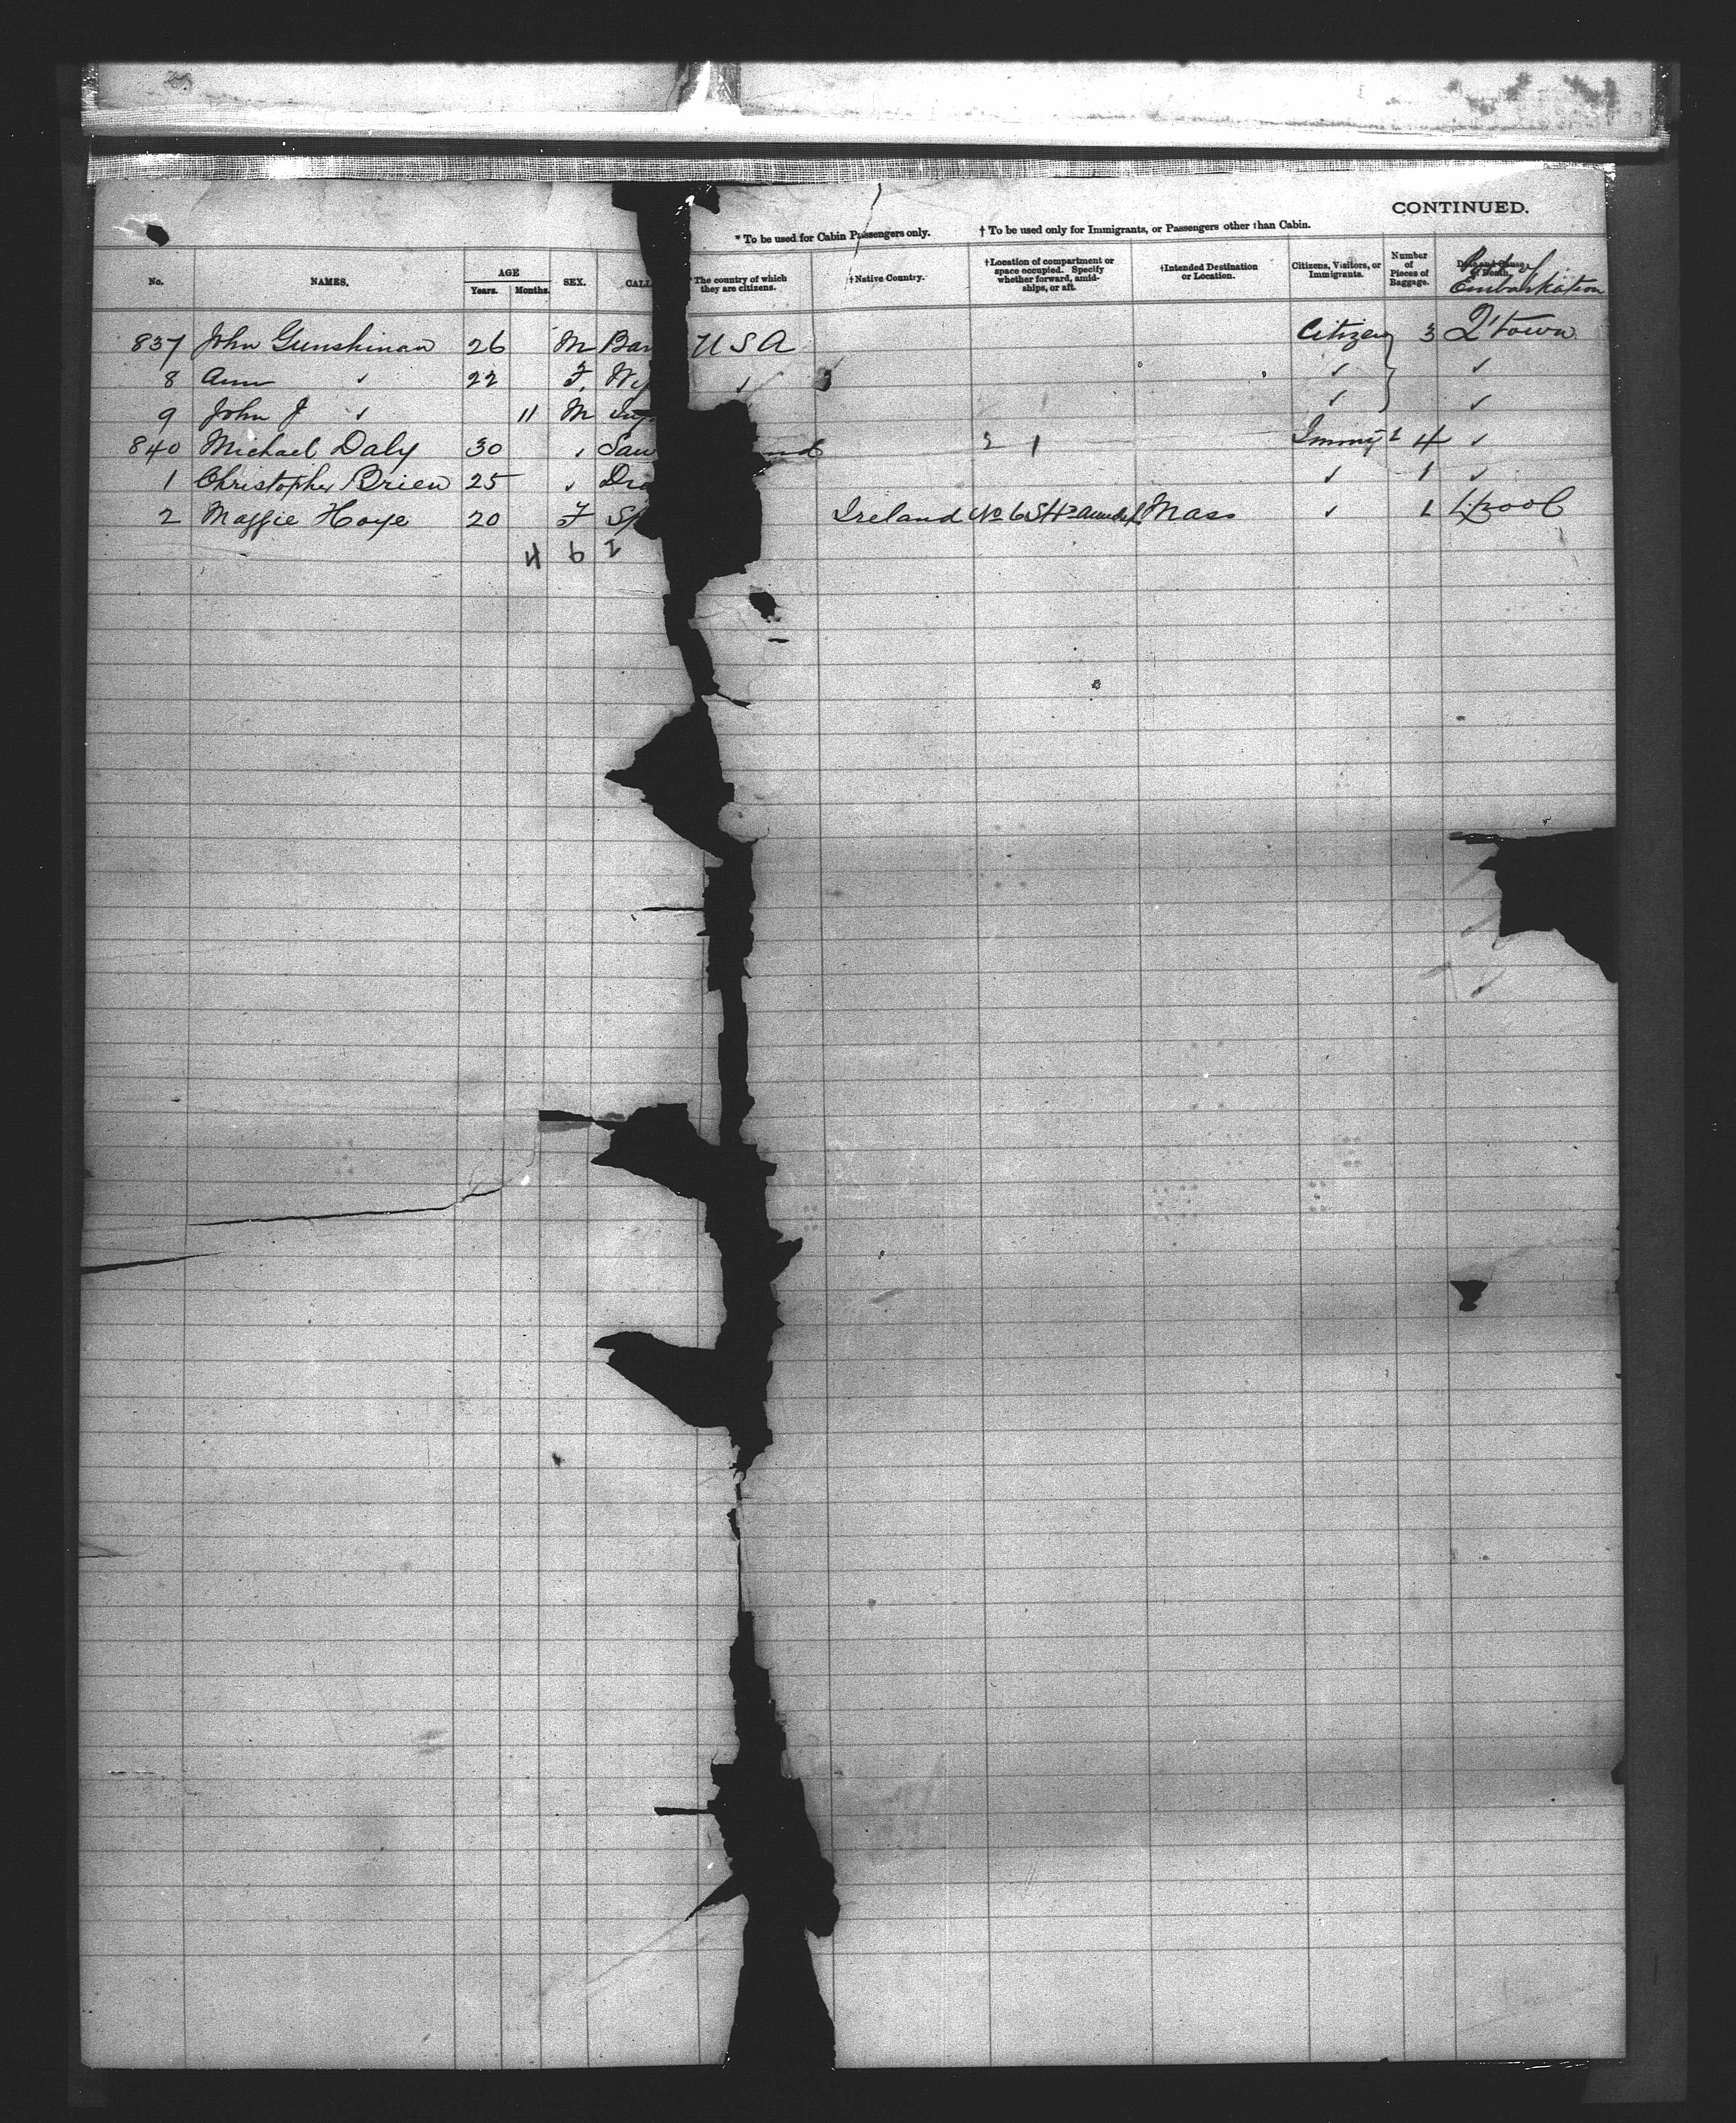 CONTINUED.
* To be used for Cabin Passengers only. † To be used only for Immigrants, or Passengers other than Cabin.
No. NAMES. AGE Years. Months. SEX. CALL The country of which they are citizens. †Native Country. †Location of compartment or space occupied. Specify whether forward, amidships, or aft. †Intended Destination or Location. Citizens, Visitors, or Immigrants. Number of Pieces of Baggage. Date and Cause of Death. Port of Embarkation
837 John Gunshinan 26 M Bar U S A Citizen 3 Q'town
8 Ann ✓ 22 F. ✓ ✓ ✓
9 John J ✓ 11 M Inf ✓ ✓
840 Michael Daly 30 ✓ Saw nd 2 1 Immig 4 ✓
1 Christopher Brien 25 ✓ Dra ✓ 1 ✓
2 Maggie Hoye 20 F Sp Ireland No 6 Mass ✓ 1 L'pool
4 6 2